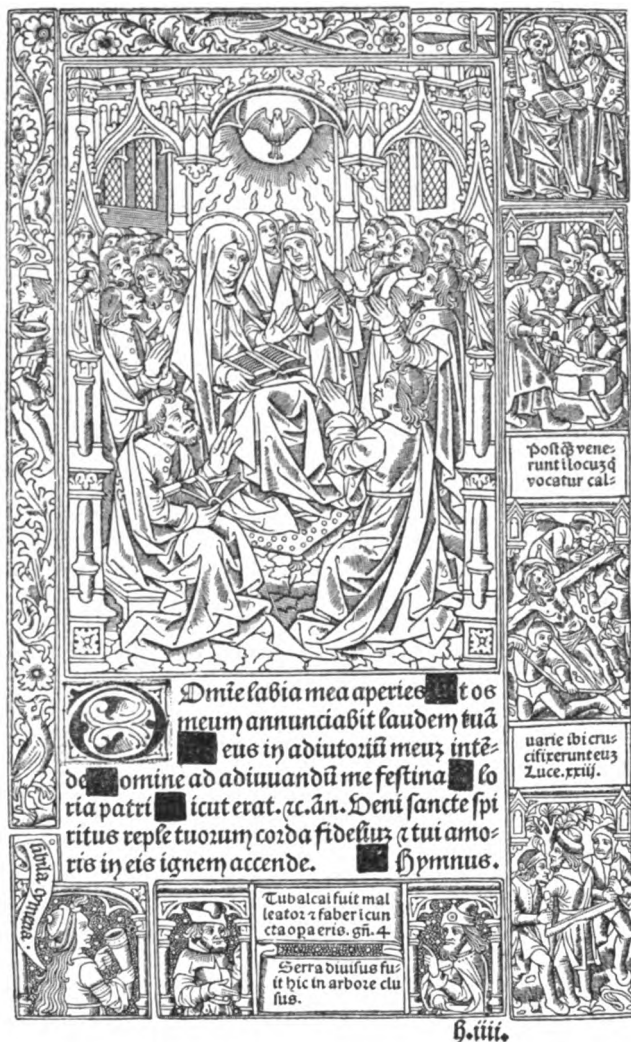 Postq̃ vene-
runt ĩ locuꝫ q̃
vocatur cal-
uarie ibi cru-
cifixerunt euꝫ
Luce. xxiij.
Omĩe labia mea aperies t os
meum annunciabit laudem tuã
eus in adiutoriũ meuꝫ intẽ-
de omine ad adiuuandũ me festina lo
ria patri icut erat. ⁊c. ãn. Veni sancte spi
ritus reple tuorum corda fideliuꝫ ⁊ tui amo-
ris in eis ignem accende. Hymnus.
Tubalcai fuit mal
leator ⁊ faber ĩ cun
cta opa eris. gñ. 4
Serra diuisus fu-
it hic in arbore clu
sus.
h.iiii.